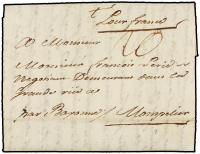 Pour france
A Monsieur
Monsieur francois
Negotiant Demeurant dans la
grande rüe a
par Baronne / Monpelier